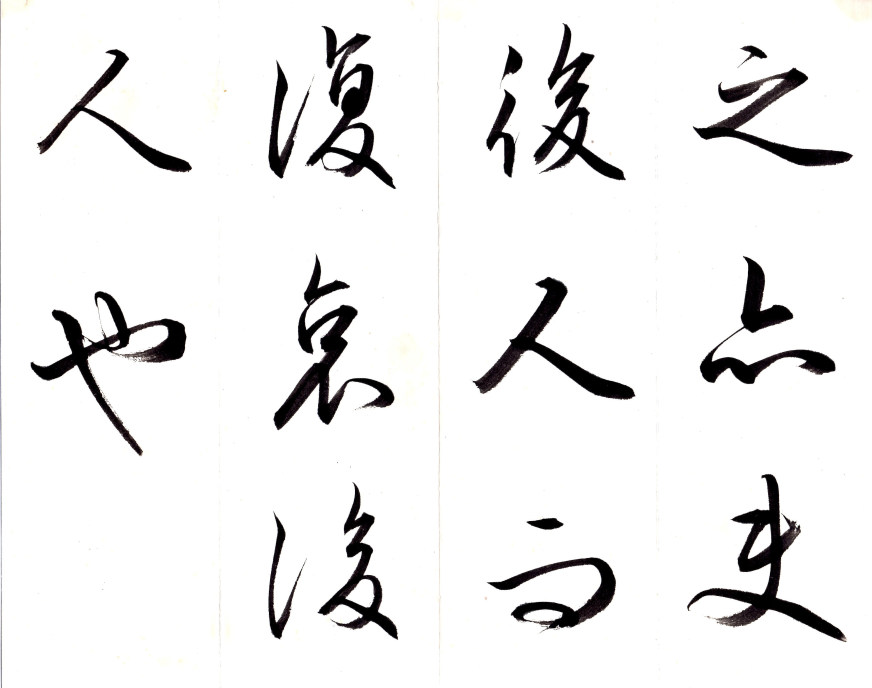 之亦使
後人而
復哀後
人也